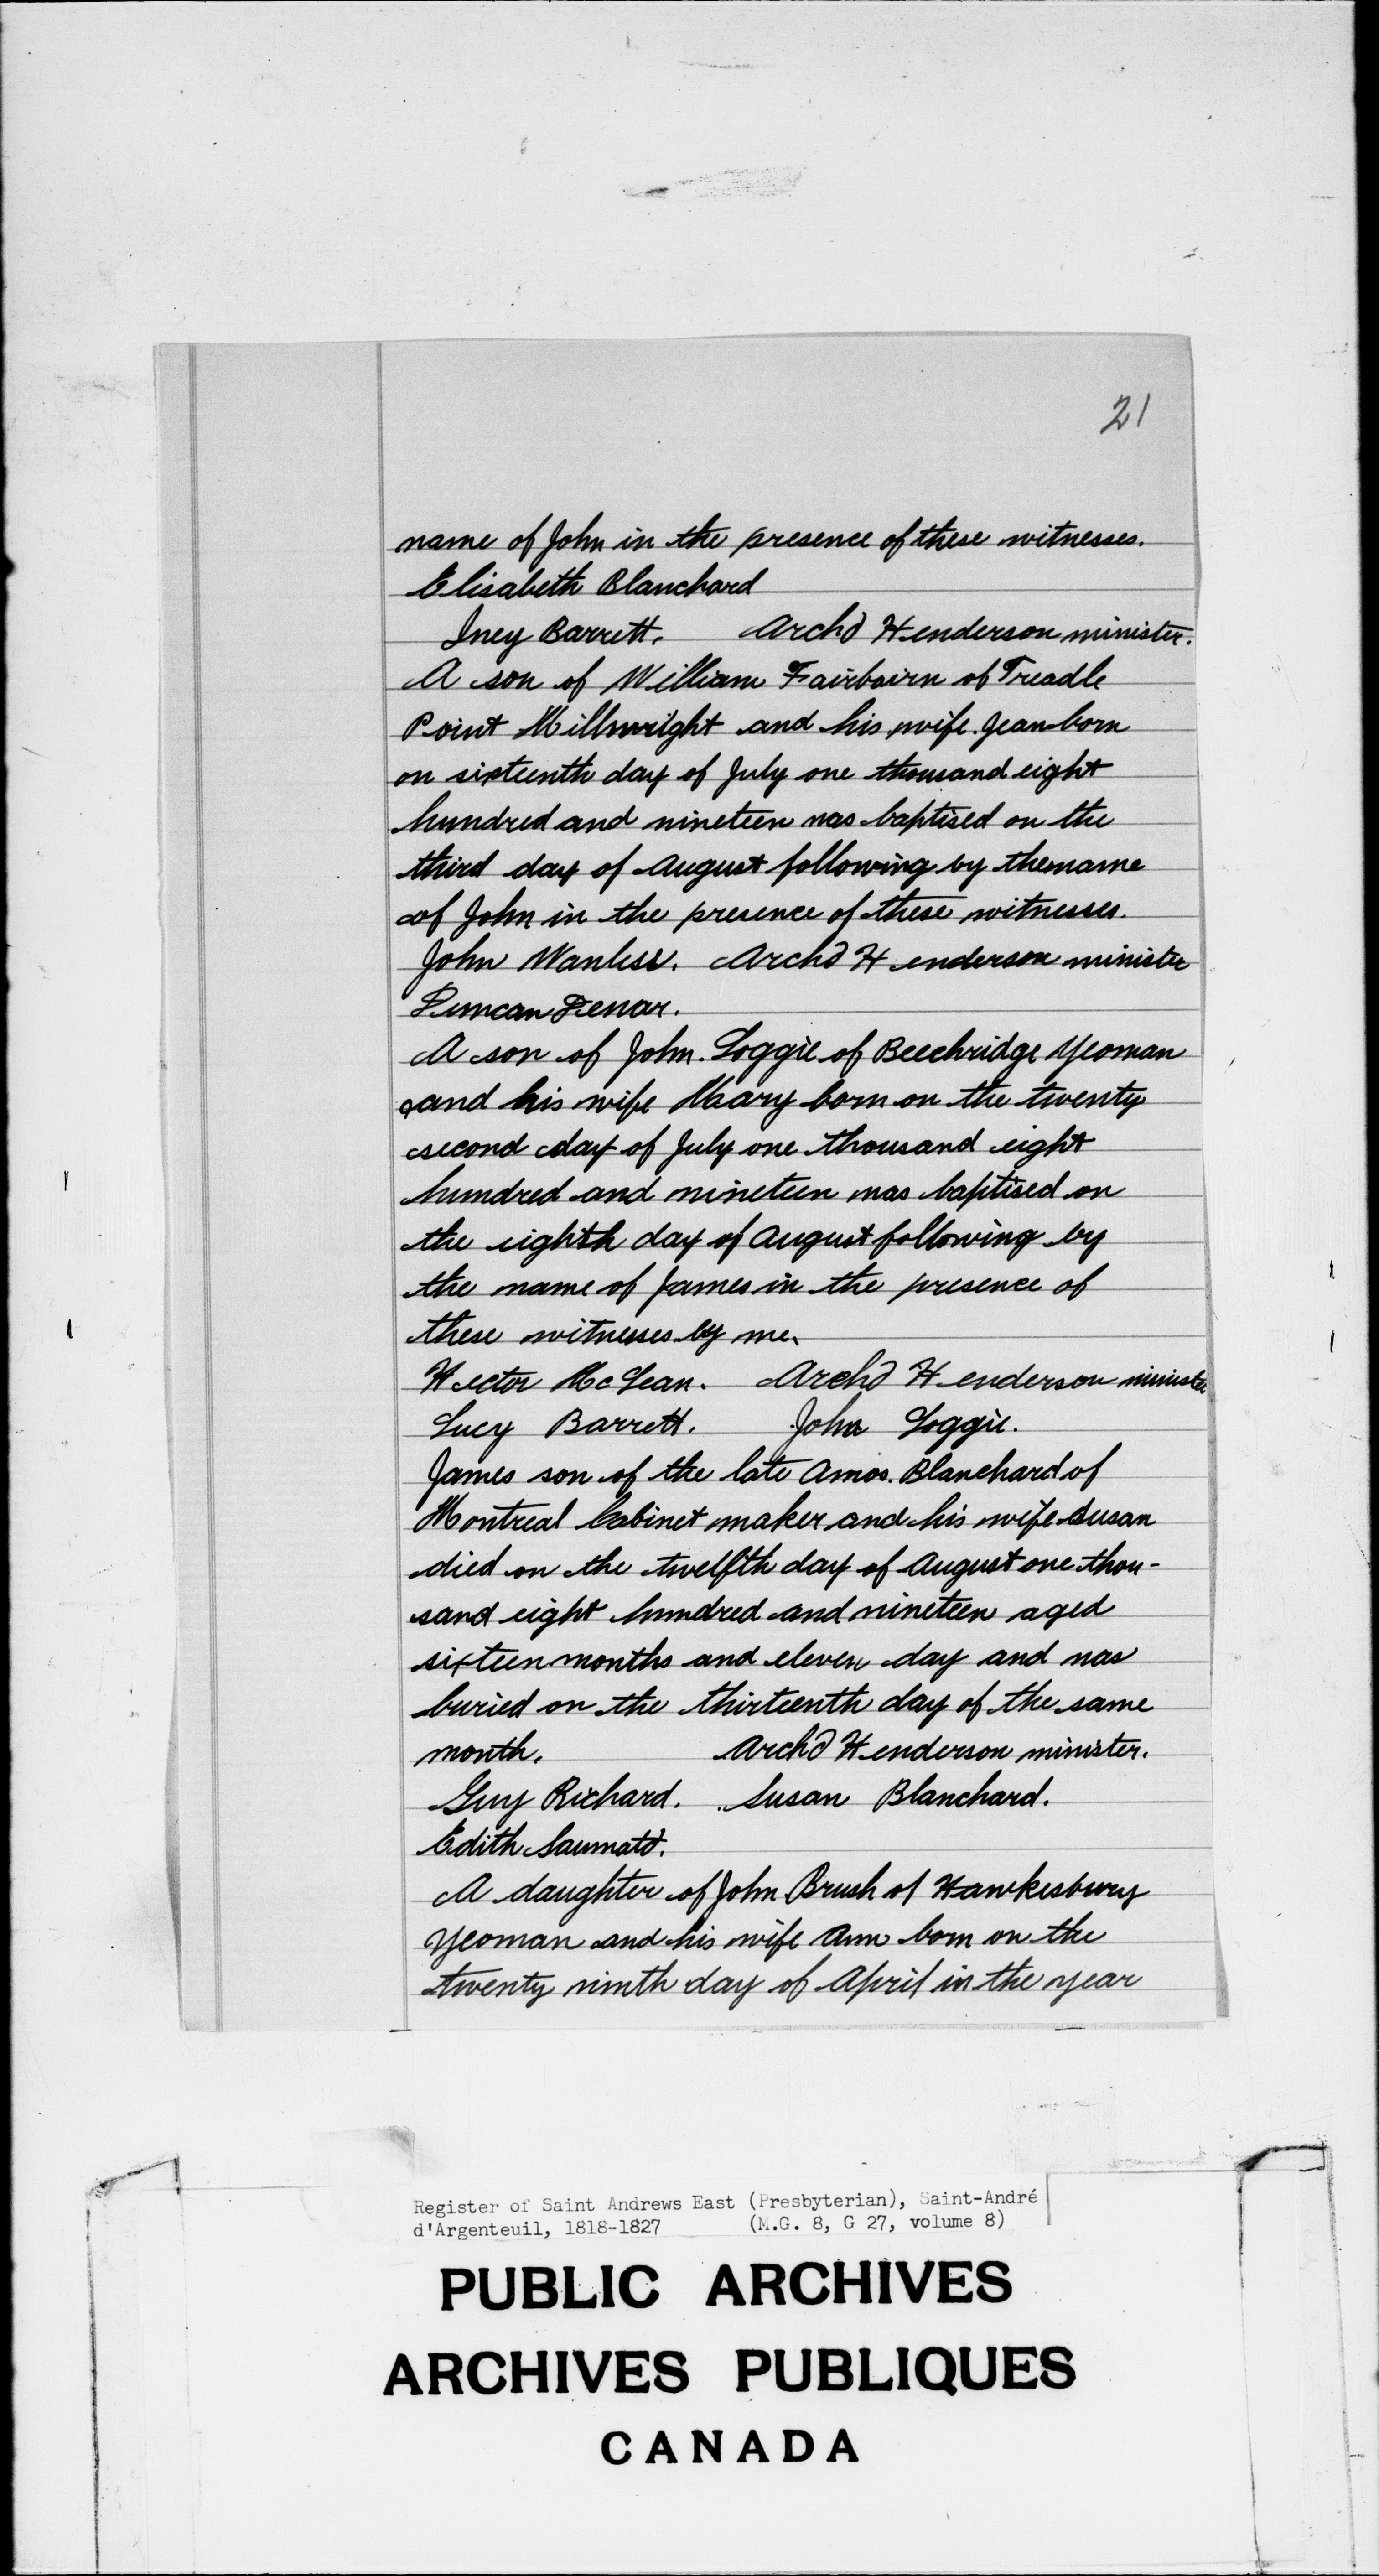 21
name of John in the presence of these witnesses.
Elisabeth Blanchard
Iney Barrett. Archd Henderson minister.
A son of William Fairbairn of Treadle
Point Millwright and his wife Jean born
on sixteenth day of July one thousand eight
hundred and nineteen was baptised on the
third day of August following by the name
of John in the presence of these witnesses.
John Wanless. Archd Henderson minister
Duncan
A son of John Loggie of Beechridge Yeoman
and his wife Mary born on the twenty
second day of July one thousand eight
hundred and nineteen was baptised on
the eighth day of August following by
the name of James in the presence of
these witnesses by me.
Hector McLean. Archd Henderson minister
Lucy Barrett. John Loggie.
James son of the late Amos Blanchard of
Montreal Cabinet maker and his wife Susan
died on the twelfth day of August one thou-
sand eight hundred and nineteen aged
sixteen months and eleven day and was
buried on the thirteenth day of the same
month. Archd Henderson minister.
Guy Richard. Susan Blanchard.
Edith
A daughter of John Brush of Hawkesbury
Yeoman and his wife Ann born on the
twenty ninth day of April in the year
Register of Saint Andrews East (Presbyterian), Saint-André
d'Argenteuil, 1818-1827 (M.G. 8, G 27, volume 8)
PUBLIC ARCHIVES
ARCHIVES PUBLIQUES
CANADA